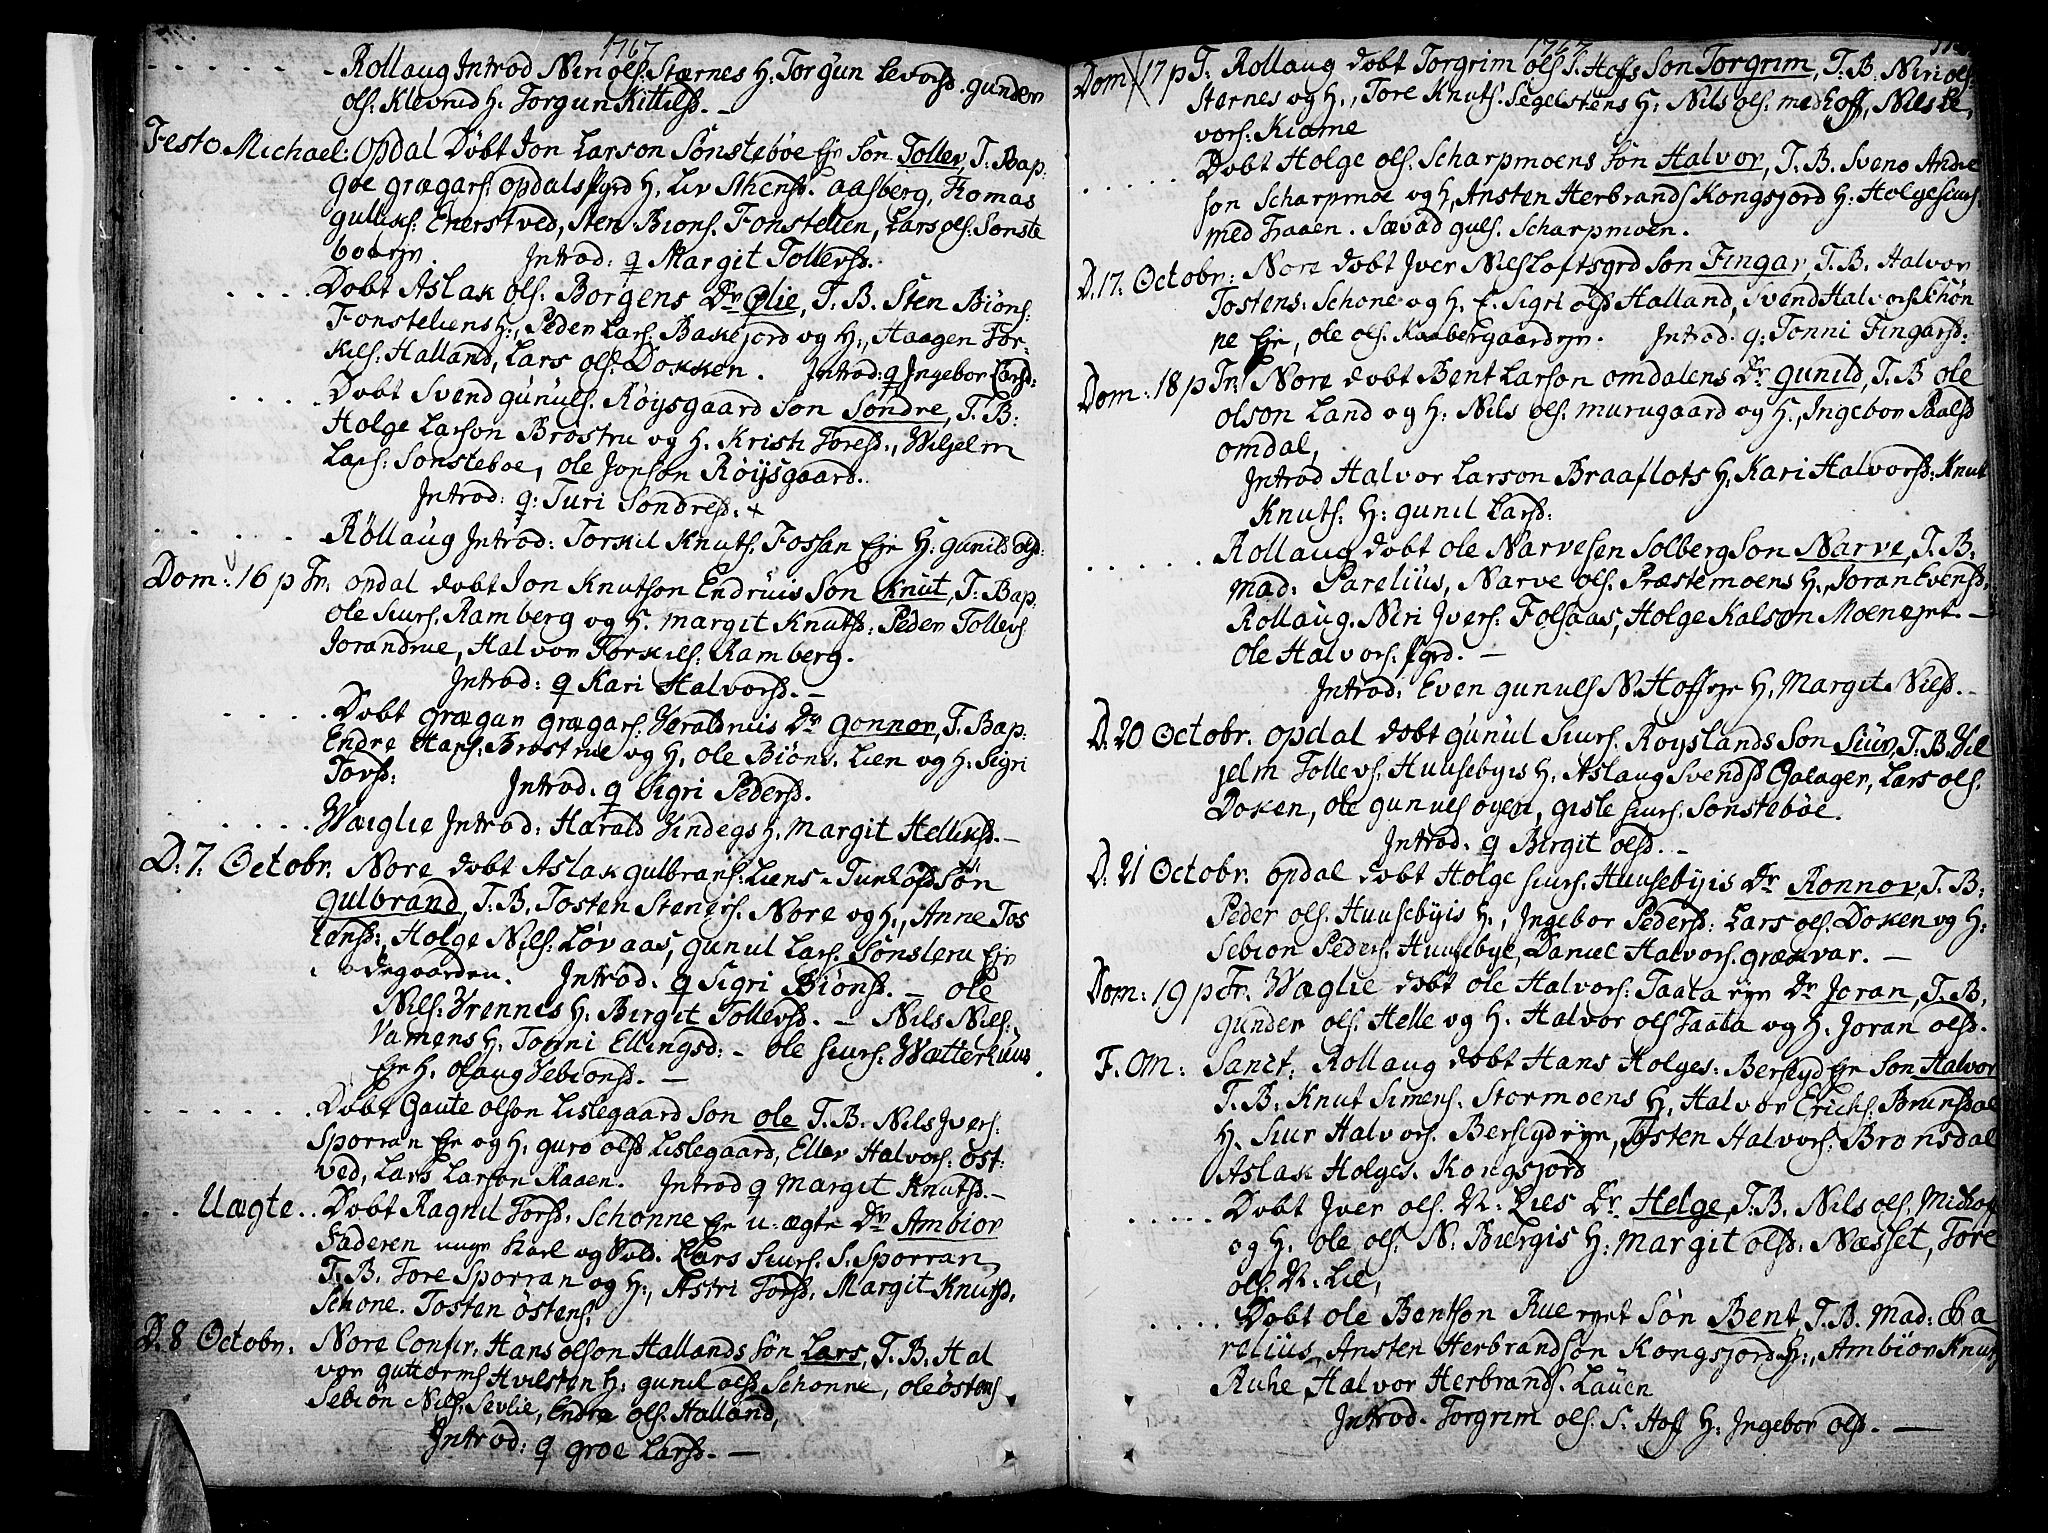 1767
Rollaug Introd Niri ols. Stærnes H. Torgun Levorsd. gunder
ols. Klevrud H. Torgun Kittilsd. –
Festo Michael: Opdal Döbt Jon Larson Sönsteböe Eje Son Tollev, T. Bap.
goe grægars: opdals Eje H. Liv Sthensd. aasberg, Tomas
gulliks: Enerstved, Sten Biöns. Fonstelien, Lars ols: Sonste
boe Introd: q Margit Tollevsd.
Dobt Aslak ols: Borgens Dr. Olie, T. B. Sten Biöns:
Fonsteliens H:, Peder Lars: Bakejord og H:, Haagen Tor-
kils: Halland, Lars ols: Dokken. Introd: q Ingebor Larsd:
Dobt Svend gunuls. Röysgaard Son Söndre, T. B:
Holge Larson Brostru og H. Kristi Toresd:, Wiljelm
Lars: Sonsteboe, ole Jonson Röysgaard.
Introd: q: Turi Sondresd: +
Röllaug Introd: Torkil Knuts. Fossan Eje H: gunild olsd:
Dom: 16 p Tr. opdal dobt Jon Knutson Endruis Son Knut, T: Bap:
ole Siurs. Ramberg og H. margit Knutsd: Peder Tollevs
Jorandrue, Halvor Torkils: Ramberg.
Introd: q Kari Halvorsd. –
Dobt grægar grægars: Veraldruis Dr gonnor, T. Bap:
Endre Hans: Brostrue og H. ole Biöns. Lien og H: Sigri
Torsd: Introd. q Sigri Pedersd.
Wæglie Introd: Harald Vindegs H. Margit Helliksd. –
D: 7. Octobr. Nore dobt Aslak gulbrans: Liens Sön
Gulbrand, T. B. Tosten Steners. Nore og H., Anne Tos
tensd:, Holge Nils: Lövaas, gunul Lars. Sönsteru Eje
degaarden. Introd. q Sigri Biönsd. – ole
Nils: Vrennes H: Birgit Tollevsd. – Nils Nils:
Vamens H: Tonni Ellingsd: – ole siurs: Wætterhuus
Eje H. olaug Sebionsd. –
Dobt Gaute olson Lislegaard Son ole T. B. Nils Ivers:
Sporran Eje og H: guro olsd Lislegaard, Ellev Halvors: öst
ved, Lars Larson Raaen. Introd q Margit Knutsd. –
Uægte. Dobt Ragnil Torsd. Schonne Eje u: ægte Dr Ambior
Faderen unge Karl og Sold. Lars Siurs. S. Sporran
T. B. Tore Sporran og H:, Astri Torsd. Margit Knutsd.
Schone. Tosten östens.
D. 8 Octobr. Nore Confir. Hans olson Hallands Sön Lars, T. B. Hal
vor guttorms Hvilsten H: gunil olsd Schonne, ole östens
Sebiön Nils: Sevlie, Endre ols. Halland,
Introd: q groe Larsd. –
1767
Dom 17 p T. Rollaug dobt Torgrim ols S. Hoffs Son Torgrim, T. B. Niri ols:
Stærnes og H., Tore Knuts. Segelstens H: Nils ols. medhoff, Nils Le
vors: Kiome
Dobt Holge ols. Scharpmoens Son Halvor, T. B. Sveno Andre
son Scharpmoe og H, Ansten Herbrands Kongsjord H: Holge siurs.
med Haaen. Sævad guls. Scharpmoen.
D. 17: Octobr: Nore dobt Jver Nils Loftsgrd Son Fingar, T. B. Halvor
Tostens: Schone og H. E. Sigri olsd Halland, Svend Halvors Schön
ne Eje, ole ols. Introd: q: Tonni Fingarsd:
Dom: 18 p Tr: Nore dobt Bent Larson omdalens Dr. gunild, T. B ole
olson Land og H: Nils ols: murugaard og H., Ingebor Paalsd
omdal,
Introd Halvor Larson Braaflots H: Kari Halvorsd: Knut
Knuts. H: gunil Larsd:
Rollaug dobt ole Narvesen Solberg Son Narve, T. B.
Mad: Parelius, Narve ols. Præstemoens H:, Joran Evensd:
Rollaug. Niri Jvers: Folsaas, Holge Kalson Moen ejet. –
Ole Halvors. –
Introd: Even gunuls N. Hoff eje H: Margit Nilsd. –
D. 20 Octobr. opdal dobt gunul Siurs. Royslands Son Siur, T. B. Vil
jelm Tollevs. Huusebyis H: Aslaug Svendsd Galager, Lars ols.
Doken, ole gunuls oyen, gisle siurs: Sonsteböe.
Introd. q Birgit olsd. –
D. 21 Octobr. opdal dobt Holge siurs: Huusebyis Dr Ronnov, T. B:
Peder ols. Huusebyis H:, Ingebor Pedersd: Lars ols. Doken og H:
Sebion Peders. Huusebye, Daniel Halvors. grækvar. –
Dom: 19 p Tr. Wæglie dobt ole Halvors: Taata eje Dr Joran, T. B.
gunder ols. Helle og H. Halvor ols Taata og H. Joran olsd.
F. Om: Sanct. Rollaug dobt Hans Holges: Berslyd Eje Son Halvor
T. B. Knut Simens. Stormoens H, Halvor Erichs: Brunsdal
H. Siur Halvors. Berslyd eje, Tosten Halvors: Bronsdal
Aslak Holges. Kongsjord
Dobt Jver ols. N. Lies Dr. Helge, T. B. Nils ols. Midhof
og H. ole ols. N. Biergis H: Margit olsd: Næsset, Tore
ols. N. Lie,
Dobt ole Bentson Rue ejet Sön Bent T. B. Mad: Pa
relius, Ansten Herbrandson Kongsjord H:, Ambior Knuts
Ruhe, Halvor Herbrands. Lauen
Introd. Torgrim ols. S. Hoff H: Ingebor olsd. –